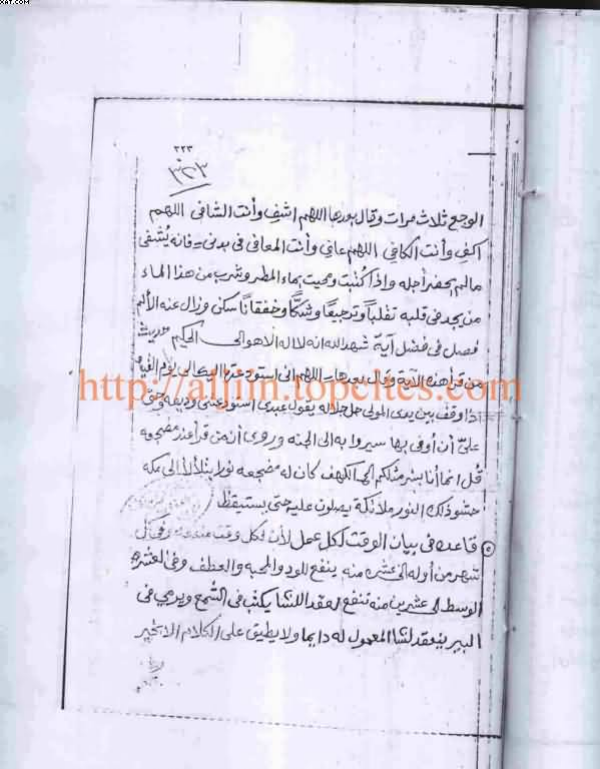 XAT.COM
٢٢٣
الوجع ثلاث مرات وقال بورعا اللهم اشف وأنت الشافي اللهم
اكف وأنت الكافي اللهم عافي وأنت المعافي في بدني فانه يُشفى
مالم يحضر أجله وإذا كُتبت ومحيت بماء المطر وشرب من هذا الماء
من يجد في قلبه تقلباً وترجيعاً وشكاً وخفقاناً سكن وزال عنه الألم
فصل في فضل آية شهد الله انه لا اله الا هو الى الحكيم حديث
من قرأ هذه الآية وقال بعدها اللهم انى استودعتها الى يوم القيمة
اذا وقف بين يدى المولى جل جلاله يقول عبدى استودعنى وديعة وحق
علىّ أن أوفى بها سيروا به الى الجنه وروى أن من قرأ عند مضجعه
قُل انما أنا بشر مثلكم الى الكهف كان له مضجعه نورا يتلألأ الى مكه
حشو ذلك النور ملائكة يصلون عليه حتى يستيقظ
قاعده في بيان الوقت لكل عمل لأن لكل وقت
شهر من أوله الى عشره منه ينفع للود والمحبه والعطف وفى العشره
الوسط الى عشرين منه تنفع لعقد اللسان يكتب فى الشمع ويرمي فى
البير ينعقد لسان المعمول له دايما ولا يطيق على الكلام الاخير
http://aljjin.topcites.com